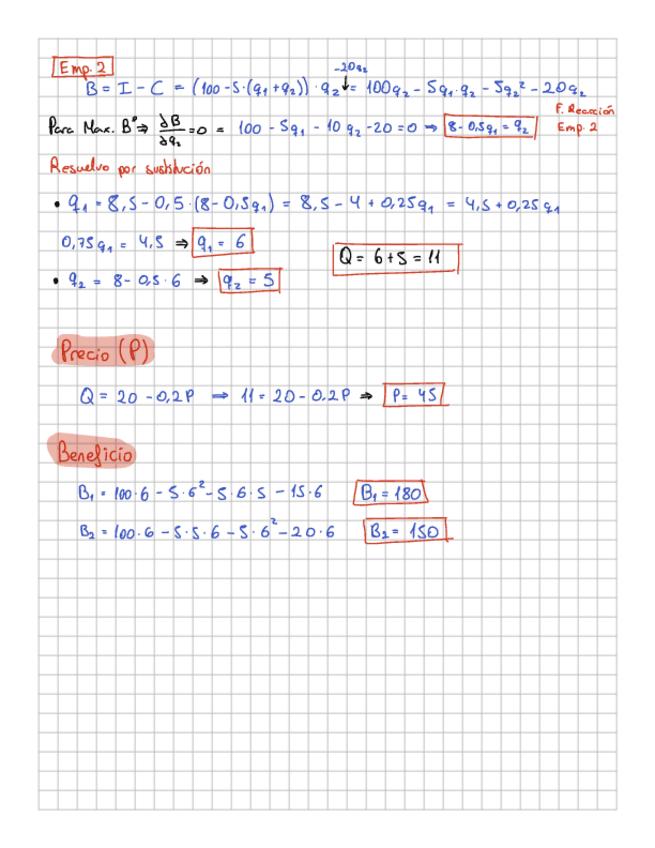 Emp. 2
-20q₂
B = I - C = (100 - 5·(q₁ + q₂))·q₂ ↓ = 100q₂ - 5q₁·q₂ - 5q₂² - 20q₂
F. Reacción
Para Max. Bº ⇒ ∂B/∂q₂ = 0 = 100 - 5q₁ - 10q₂ - 20 = 0 ⇒ 8 - 0,5q₁ = q₂ Emp. 2
Resuelvo por sustitución
• q₁ = 8,5 - 0,5·(8 - 0,5q₁) = 8,5 - 4 + 0,25q₁ = 4,5 + 0,25q₁
0,75q₁ = 4,5 ⇒ q₁ = 6
Q = 6 + 5 = 11
• q₂ = 8 - 0,5·6 ⇒ q₂ = 5
Precio (P)
Q = 20 - 0,2P ⇒ 11 = 20 - 0,2P ⇒ P = 45
Beneficio
B₁ = 100·6 - 5·6² - 5·6·5 - 15·6 B₁ = 180
B₂ = 100·6 - 5·5·6 - 5·6² - 20·6 B₂ = 150